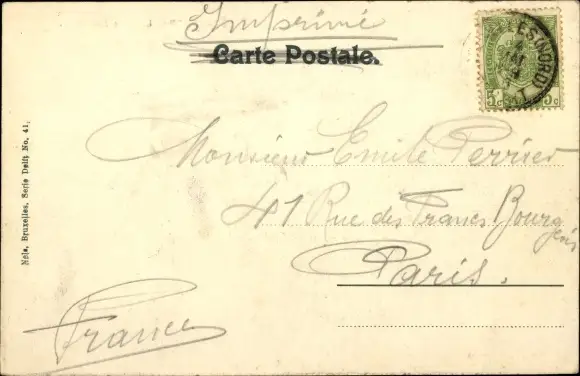 Imprimé
Carte Postale.
5c 5c
Monsieur Emile Perrier
41 Rue des Francs Bourgeois
Paris.
France
Nels, Bruxelles, Serie Delft No. 41.